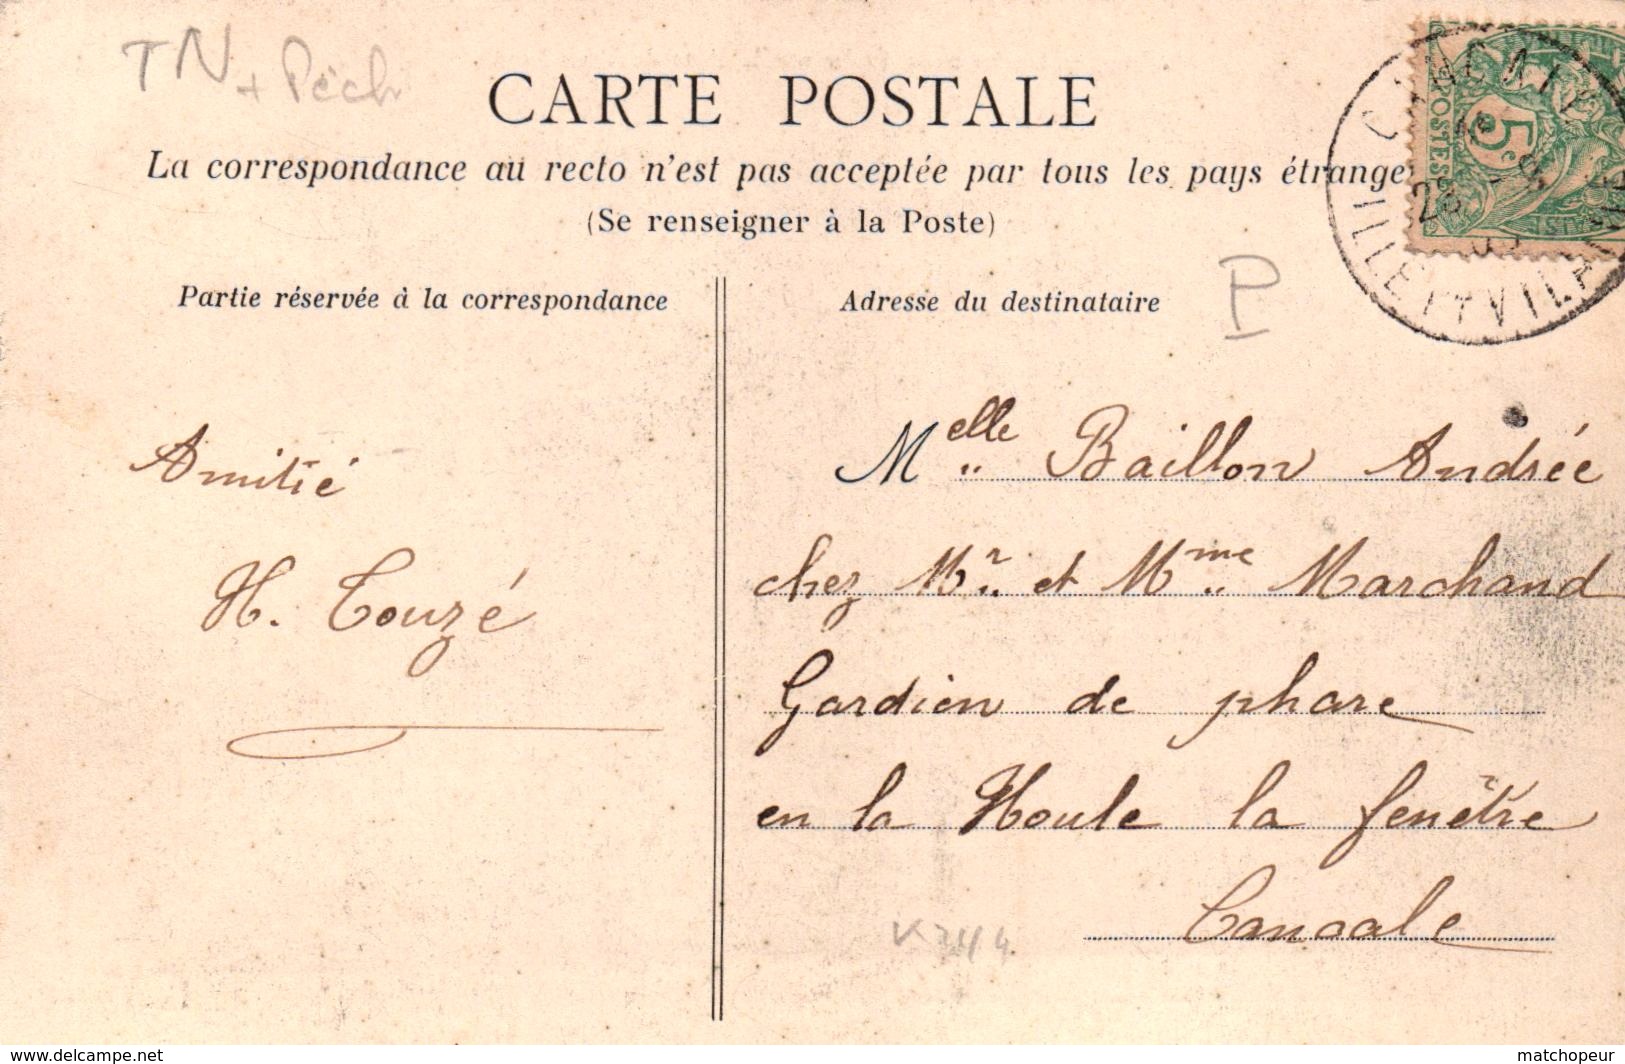 TN
+ Pêch
CARTE POSTALE
La correspondance au recto n'est pas acceptée par tous les pays étrange
(Se renseigner à la Poste)
Partie réservée à la correspondance
Adresse du destinataire
P
POSTES
5c
CANCALE
ILLE-ET-VILAINE
Amitié
H. Touzé
Melle Baillon Andrée
chez Mr. et Mme Marchand
Gardien de phare
en la Houle la fenêtre
Cancale
K344
delcampe.net
matchopeur